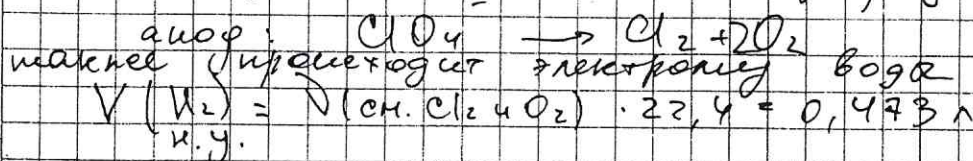 анод: ClO4 → Cl2 + 2O2
также происходит электролиз воды
V(H2) = ν(см. Cl2 и O2) · 22,4 = 0,473 л
н.у.